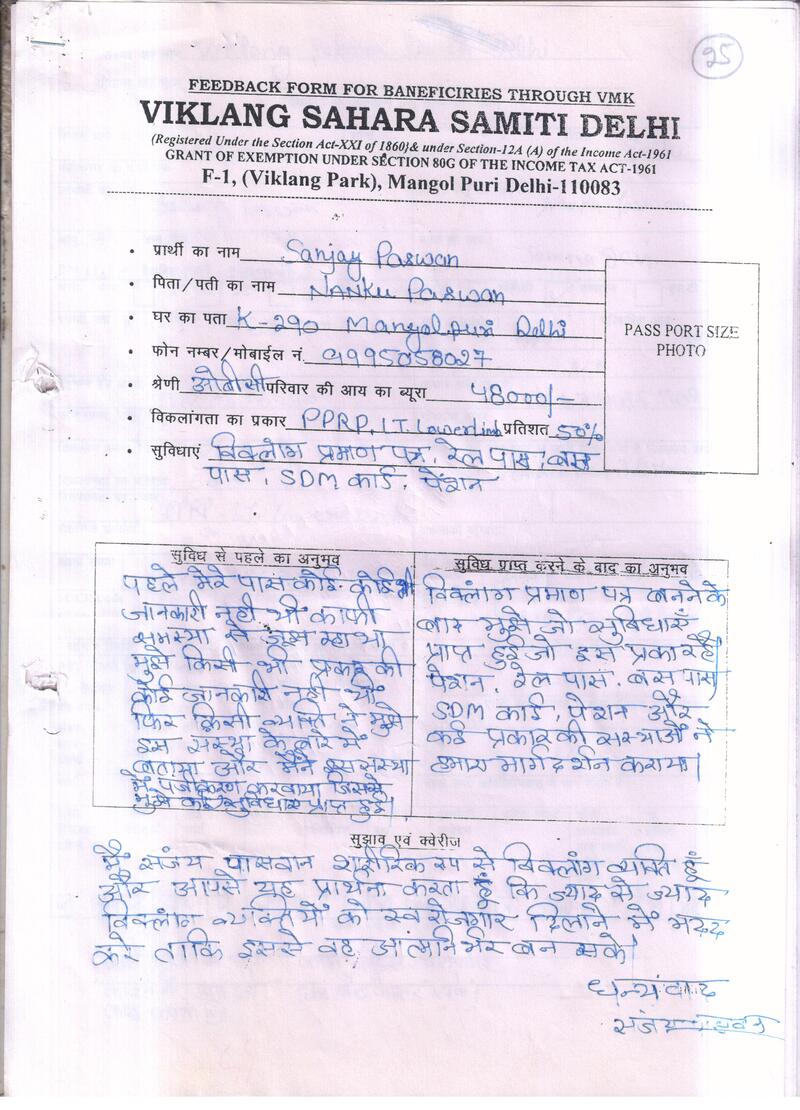 25
FEEDBACK FORM FOR BANEFICIRIES THROUGH VMK
VIKLANG SAHARA SAMITI DELHI
(Registered Under the Section Act-XXI of 1860)& under Section-12A (A) of the Income Act-1961
GRANT OF EXEMPTION UNDER SECTION 80G OF THE INCOME TAX ACT-1961
F-1, (Viklang Park), Mangol Puri Delhi-110083
• प्रार्थी का नाम Sanjay Paswan
• पिता/पती का नाम NANKU Paswan
• घर का पता K-290 Mangolpuri Delhi
• फोन नम्बर/मोबाईल नं.
• श्रेणी ओबीसी परिवार की आय का ब्यूरा 48000/-
• विकलांगता का प्रकार PPRP.LT. Lowerlimb प्रतिशत 50%
• सुविधाएं विकलांग प्रमाण पत्र, रेल पास, बस
पास, SDM कार्ड, पेंशन
PASS PORT SIZE
PHOTO
सुविध से पहले का अनुभव
पहले मेरे पास कोई कोई भी
जानकारी नही थी काफी
समस्या से जूझ रहा था
मुझे किसी भी प्रकार की
कोई जानकारी नही थी
फिर किसी व्यक्ति ने मुझे
इस संस्था के बारे में
बताया और मैंने इस संस्था
में पंजीकरण करवाया जिससे
मुझे कई सुविधाए प्राप्त हुई।
सुविध प्राप्त करने के बाद का अनुभव
विकलांग प्रमाण पत्र बनने के
बाद मुझे जो सुविधाएँ
प्राप्त हुई जो इस प्रकार है
पेंशन, रेल पास, बस पास
SDM कार्ड, पेंशन और
कई प्रकार की संस्थाओं ने
हमारा मार्गदर्शन कराया।
सुझाव एवं क्वेरीज
मैं संजय पासवान शारीरिक रूप से विकलांग व्यक्ति हूँ
और आपसे यह प्रार्थना करता हूँ कि ज्याद से ज्याद
विकलांग व्यक्तियों को स्वरोजगार दिलाने में मदद
करे ताकि इससे वह आत्मनिर्भर बन सके।
धन्यवाद
संजय